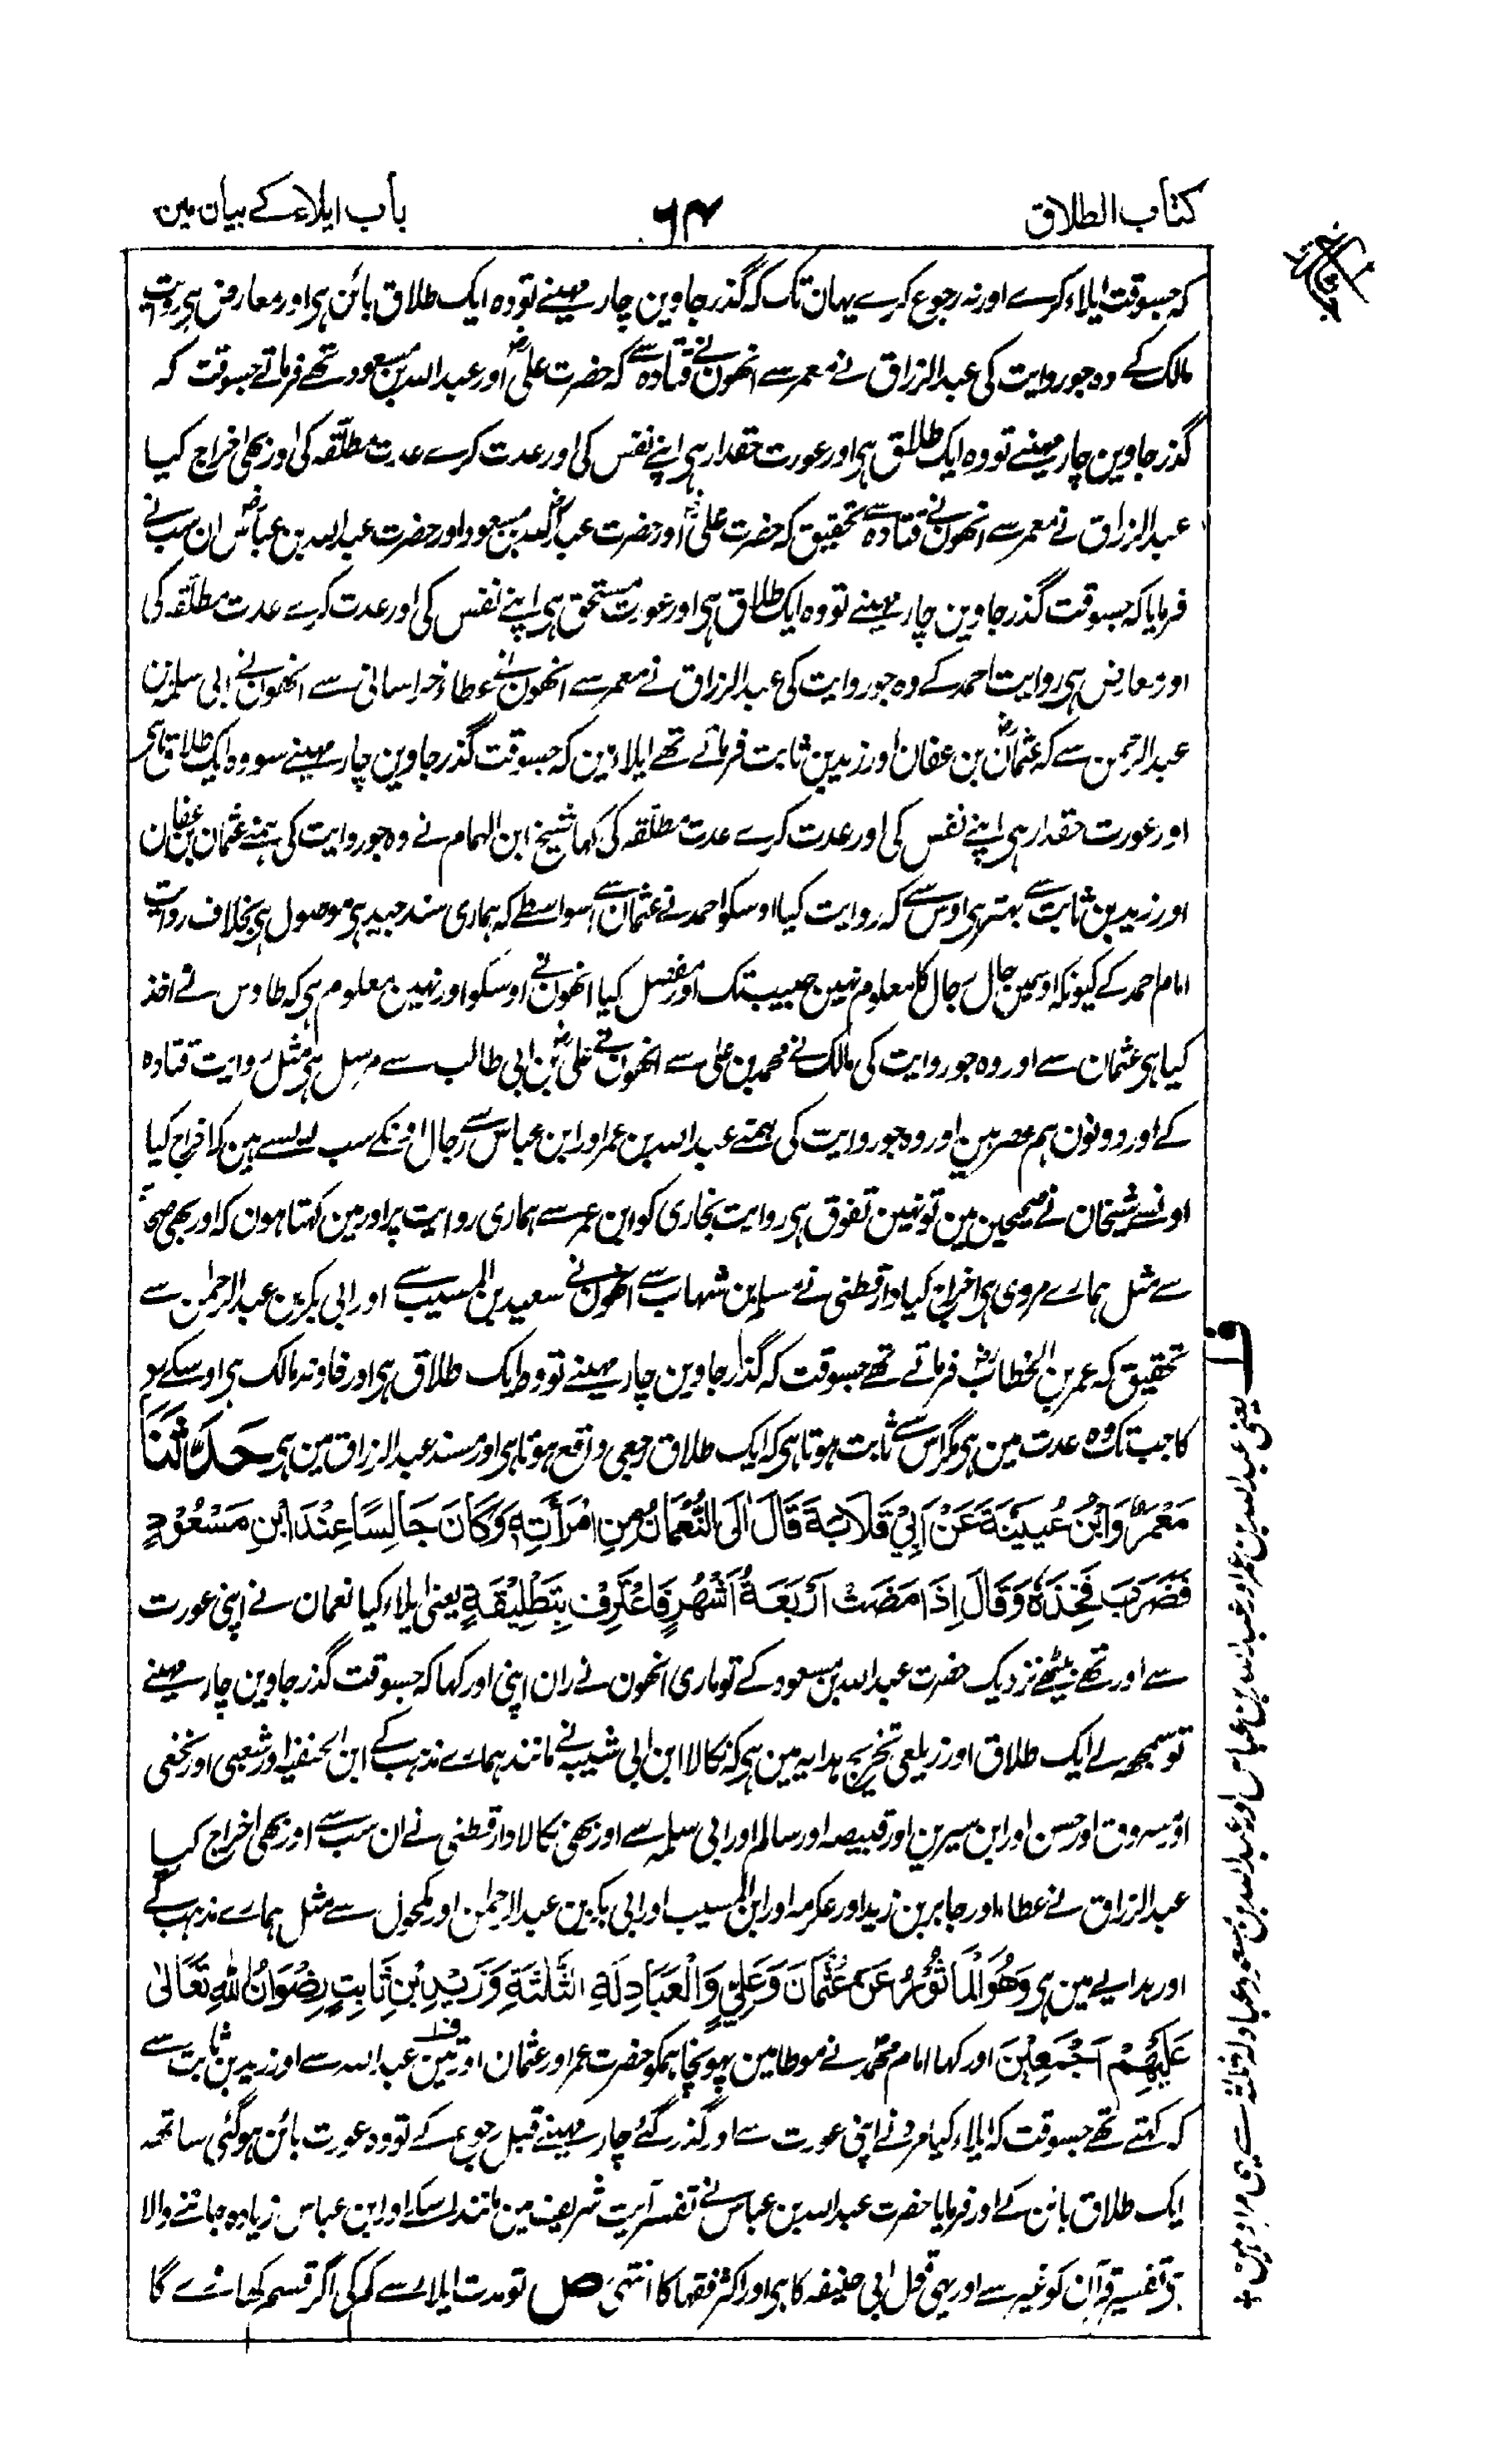 کتاب الطلاق
۶۴
باب ایلاء کے بیان مین
کہ جسوقت ایلاء کرے اور نہ رجوع کرے یہان تک کہ گذر جاوین چار مہینے تو وہ ایک طلاق بائن ہی اور معارض ہی روایت
مالک کے وہ جو روایت کی عبدالرزاق نے معمر سے انھون نے قتادہ سے کہ حضرت علیؓ اور عبداللہ بن مسعود تھے فرماتے جسوقت کہ
گذر جاوین چار مہینے تو وہ ایک طلاق ہی اور عورت حقدار ہی اپنے نفس کی اور عدت کرے عدت مطلّقہ کی اور بھی اخراج کیا
عبدالرزاق نے معمر سے انھون نے قتادہ سے تحقیق کہ حضرت علیؓ اور حضرت عبداللہ بن مسعود اور حضرت عبداللہ بن عباسؓ ان سب نے
فرمایا کہ جسوقت گذر جاوین چار مہینے تو وہ ایک طلاق ہی اور عورت مستحق ہی اپنے نفس کی اور عدت کرے عدت مطلّقہ کی
اور معارض ہی روایت احمد کے وہ جو روایت کی عبدالرزاق نے معمر سے انھون نے عطاء خراسانی سے انھون نے ابی سلمہ بن
عبدالرحمن سے کہ عثمانؓ بن عفان اور زید بن ثابت فرماتے تھے ایلاء مین کہ جسوقت گذر جاوین چار مہینے سو وہ ایک طلاق بائن ہی
اور عورت حقدار ہی اپنے نفس کی اور عدت کرے عدت مطلّقہ کی کہا شیخ ابن الہمام نے وہ جو روایت کی ہمنے عثمان بن عفان
اور زید بن ثابت سے بہتر ہی اوس سے کہ روایت کیا اوسکو احمد نے عثمان سے اسواسطے کہ ہماری سند جید ہی موصول ہی بخلاف روایت
امام احمد کے کیونکہ اوسمین حال رجال کا معلوم نہین حبیب تک اور مفصل کیا انھون نے اوسکو اور نہین معلوم ہی کہ طاوس نے اخذ
کیا ہی عثمان سے اور وہ جو روایت کی مالک نے محمد بن علی سے انھون نے علیؓ بن ابی طالب سے مرسل ہی مثل روایت قتادہ
کے اور دونون ہم عصر ہین اور وہ جو روایت کی ہمنے عبداللہ بن عمر اور ابن عباس سے رجال اونکے سب ایسے ہین کہ اخراج کیا
اونسے شیخان نے صحیحین مین تو نہین تفوق ہی روایت بخاری کو ابن عمر سے ہماری روایت پر اور مین کہتا ہون کہ اور بھی صحابہ
سے مثل ہمارے مروی ہی اخراج کیا دارقطنی نے مسلم بن شہاب سے انھون نے سعید بن المسیب سے اور ابی بکر بن عبدالرحمٰن سے
تحقیق کہ عمر بن الخطابؓ فرماتے تھے جسوقت کہ گذر جاوین چار مہینے تو وہ ایک طلاق ہی اور خاوند مالک ہی اوسکے رد
کا جب تک وہ عدت مین ہی مگر اس سے ثابت ہوتا ہی کہ ایک طلاق رجعی واقع ہوتا ہی اور مسند عبدالرزاق مین ہی حَدَّثَنَا
مَعْمَرٌ وَابْنُ عُیَیْنَةَ عَنْ اَبِیْ قَلَابَةَ قَالَ اٰلَی النُّعْمَانُ مِنِ امْرَأَتِهٖ وَکَانَ جَالِسًا عِنْدَ ابْنِ مَسْعُوْدٍ
فَضَرَبَ فَخِذَهٗ وَقَالَ اِذَا مَضَتْ اَرْبَعَةُ اَشْهُرٍ فَاعْتَرِفْ بِتَطْلِیْقَةٍ یعنی ایلاء کیا نعمان نے اپنی عورت
سے اور تھے بیٹھے نزدیک حضرت عبداللہ بن مسعود کے تو ماری انھون نے ران اپنی اور کہا کہ جسوقت گذر جاوین چار مہینے
تو سمجھ لے ایک طلاق اور زیلعی تخریج ہدایہ مین ہی کہ نکالا ابن ابی شیبہ نے مانند ہمارے مذہب کے ابن الحنفیہ اور شعبی اور نخعی
اور مسروق اور حسن اور ابن سیرین اور قبیصہ اور سالم اور ابی سلمہ سے اور بھی نکالا دارقطنی نے ان سب سے اور بھی اخراج کیا
عبدالرزاق نے عطاء اور جابر بن زید اور عکرمہ اور ابن المسیب اور ابی بکر بن عبدالرحمٰن اور مکحول سے مثل ہمارے مذہب کے
اور ہدایے مین ہی وَهُوَ الْمَاثُوْرُ عَنْ عُثْمَانَ وَعَلِیٍّ وَالْعَبَادِلَةِ الثَّلٰثَةِ وَزَیْدِ بْنِ ثَابِتٍ رِضْوَانُ اللهِ تَعَالٰی
عَلَیْهِمْ اَجْمَعِیْنَ اور کہا امام محمدؒ نے موطا مین پہونچا ہمکو حضرت عمر اور عثمان اور عبداللہ سے اور زید بن ثابت سے
کہ کہتے تھے جسوقت کہ ایلاء کیا مرد نے اپنی عورت سے اور گذر گئے چار مہینے قبل رجوع کے تو وہ عورت بائن ہو گئی ساتھ
ایک طلاق بائن کے اور فرمایا حضرت عبداللہ بن عباس نے تفسیر آیت شریف مین مانند اسکے اور ابن عباس زیادہ جاننے والا
ہی تفسیر قرآن کو غیر سے اور یہی قول ابی حنیفہ کا ہی اور اکثر فقہا کا انتہیٰ ص تو مدت ایلاء سے کم کی اگر قسم کھاے گا
ف
یعنی عبداللہ بن عمر اور عبداللہ بن عباس اور عبداللہ بن مسعود عبادلہ ثلثہ سے یہی مراد ہین